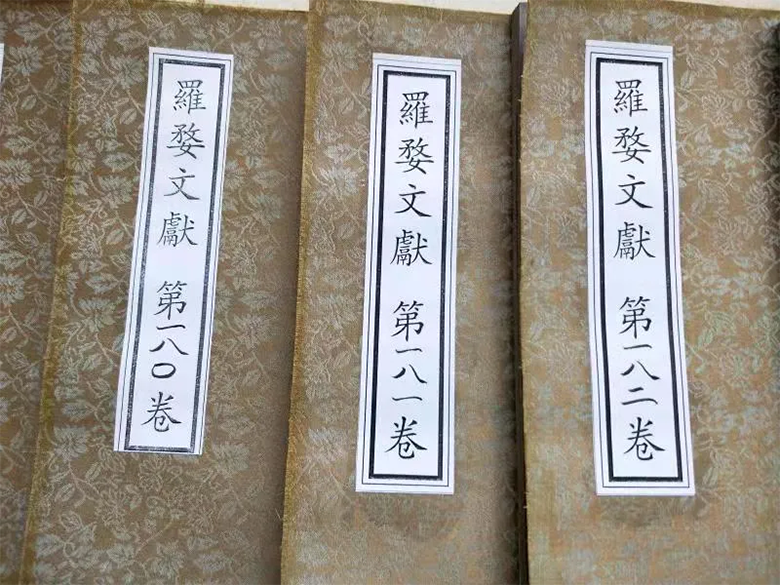 羅婺文獻 第一八〇卷
羅婺文獻 第一八一卷
羅婺文獻 第一八二卷